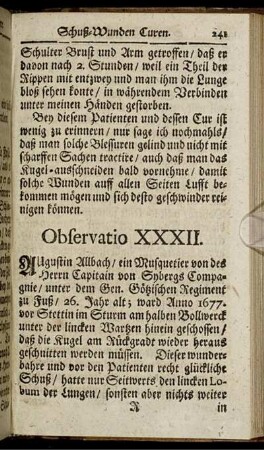 Schuß-Wunden Curen. 241
Schulter Brust und Arm getroffen/ daß er
davon nach 2. Stunden/ weil ein Theil der
Rippen mit entzwey und man ihm die Lunge
bloß sehen konte/ in währendem Verbinden
unter meinen Händen gestorben.
Bey diesem Patienten und dessen Cur ist
wenig zu erinnern/ nur sage ich nochmahls/
daß man solche Blessuren gelind und nicht mit
scharffen Sachen tractire/ auch daß man das
Kugel-ausschneiden bald vornehme/ damit
solche Wunden auff allen Seiten Lufft be-
kommen mögen und sich desto geschwinder rei-
nigen können.
Observatio XXXII.
AUgustin Allbach/ ein Musquetier von des
Herrn Capitain von Sybergs Compa-
gnie/ unter dem Gen. Götzischen Regiment
zu Fuß/ 26. Jahr alt; ward Anno 1677.
vor Stettin im Sturm am halben Bollwerck
unter der lincken Wartzen hinein geschossen/
daß die Kugel am Rückgrade wieder heraus
geschnitten werden müssen. Dieser wunder-
bahre und vor den Patienten recht glückliche
Schuß/ hatte nur Seitwerts den lincken Lo-
bum der Lungen/ sonsten aber nichts weiter
R in